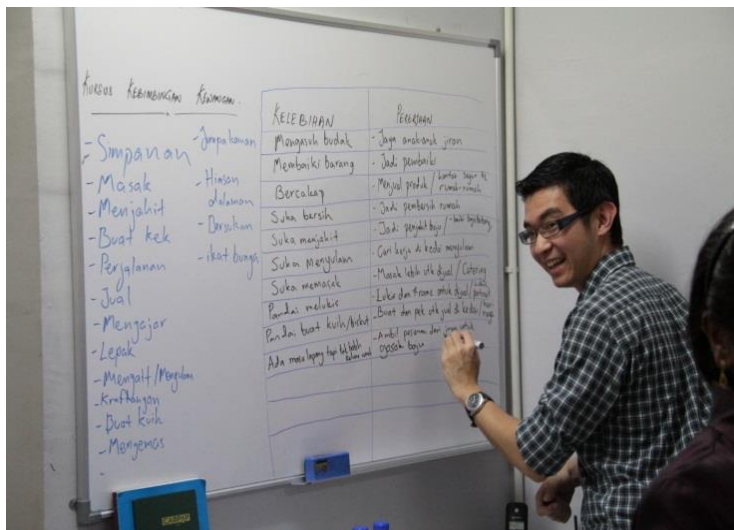 KURSUS KEBIMBINGAN KEWANGAN
- Simpanan
- Masak
- Menjahit
- Buat kek
- Perjalanan
- Jual
- Mengajar
- Lepak
- Mengait /
- Kraftangan
- Buat kuih
- Mengemas
-
- Jumpa kawan
- Hiasan dalaman
- Bersukan
- ikat bunga
KELEBIHAN PEKERJAAN
Mengasuh budak - Jaga anak-anak jiran
Membaiki barang - Jadi pembaiki
Bercakap - Menjual produk / hantar sayur ke rumah-rumah
Suka bersih - Jadi pembersih rumah
Suka menjahit - Jadi penjahit baju /
Suka Menyulam - Cari kerja di kedai menyulam
Suka memasak - Masak lebih utk dijual / Catering
Pandai melukis - Lukis dan frame untuk dijual / potrait
Pandai buat kuih/biskut - Buat dan pek utk jual di kedai /
Ada masa lapang tapi tak boleh keluar - Ambil pesanan dan untuk gosok baju